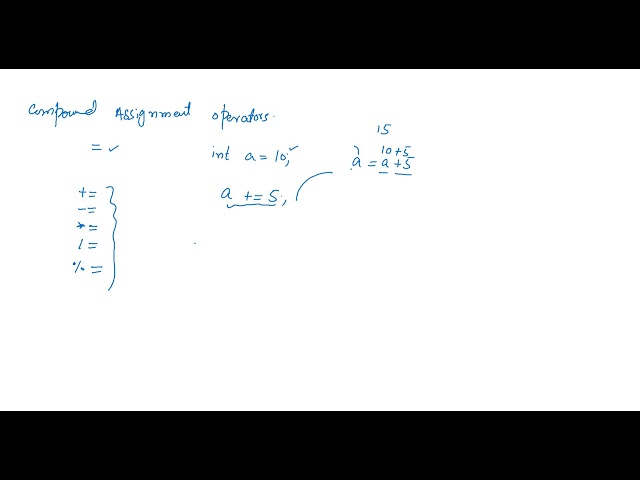 Compound Assignment operators.
=
int a = 10;
15
10+5
a = a + 5
a += 5;
+=
-=
*=
/=
%=